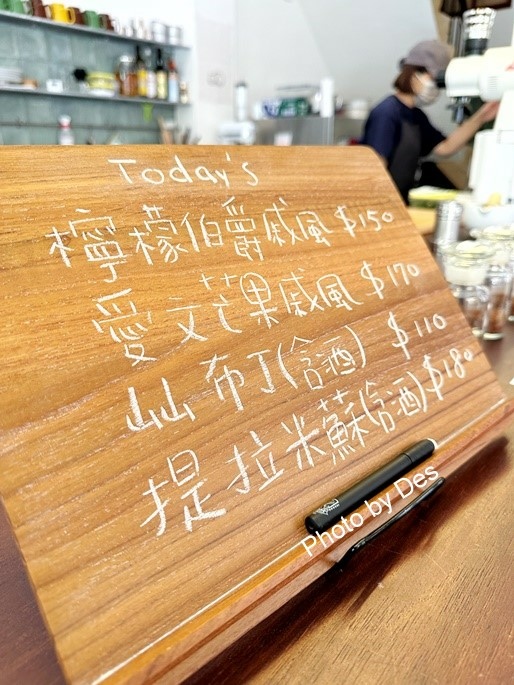 Today's
檸檬伯爵戚風 $150
愛文芒果戚風 $170
屾布丁(含酒) $110
提拉米蘇(含酒) $180
Photo by Des